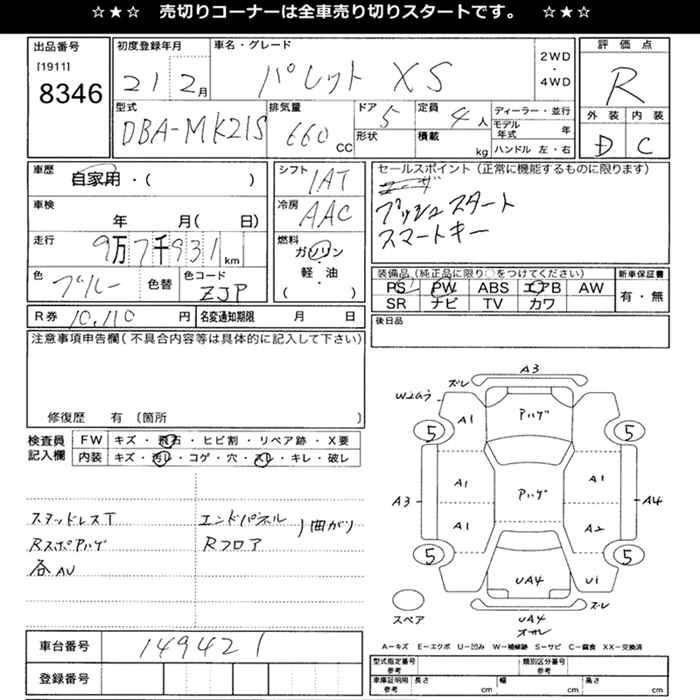 ☆★☆ 売切りコーナーは全車売り切りスタートです。 ☆★☆
出品番号
[1911]
8346
初度登録年月
21 2月
車名・グレード
パレット XS
2WD
・
4WD
評価点
R
型式
DBA-MK21S
排気量
660 CC
ドア 5
形状
定員 4 人
積載 kg
ディーラー・並行
モデル年式 年
ハンドル 左・右
外装 内装
D C
車歴
自家用・( )
シフト
IAT
セールスポイント(正常に機能するものに限ります)
プッシュスタート
スマートキー
車検
年 月( 日)
冷房
AAC
走行
9万7千931 km
燃料
ガソリン
・
軽・油
( )
色
ブルー
色替
色コード
ZJP
装備品(純正品に限り○をつけてください)
PS PW ABS エアB AW
SR ナビ TV カワ
新車保証書
有・無
R券 10,110 円
名変通知期限 月 日
後日品
注意事項申告欄(不具合内容等は具体的に記入して下さい)
修復歴 有 〔箇所 〕
検査員
記入欄
FW キズ・飛石・ヒビ割・リペア跡・X要
内装 キズ・汚レ・コゲ・穴・スレ・キレ・破レ
スタッドレスT
Rスポアハゲ
各AU
エンドパネル
Rフロア
曲がり
A3
ズレ
W2有う
A1
アハゲ
5
5
A3
A1
アハゲ
A1
A4
A1
A2
5
5
UA4
U1
スペア
ズレ
UA4
オサレ
車台番号
149421
登録番号
A−キズ E−エクボ U−凹み W−補修跡 S−サビ C−腐食 XX−交換済
型式指定番号
参考
類別区分番号
参考
車庫証明用
参考
長さ cm
幅 cm
高さ cm